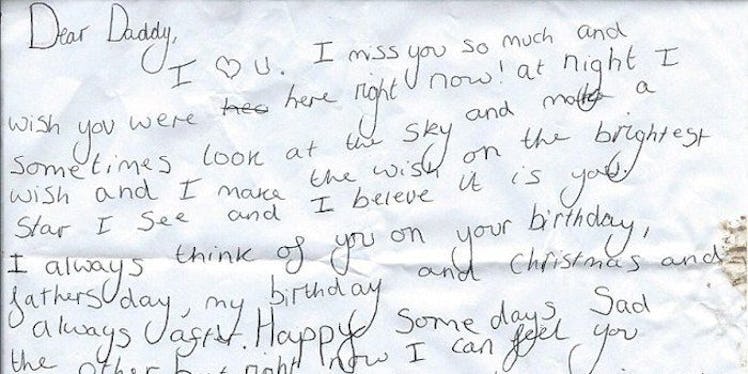 Dear Daddy,
I ♡ U. I miss you so much and
wish you were hee here right now! at night I
sometimes look at the sky and make a
wish and I make the wish on the brightest
star I see and I beleve it is you.
I always think of you on your birthday,
fathers day, my birthday and Christmas and
always after. Happy some days Sad
the other but right now I can feel you